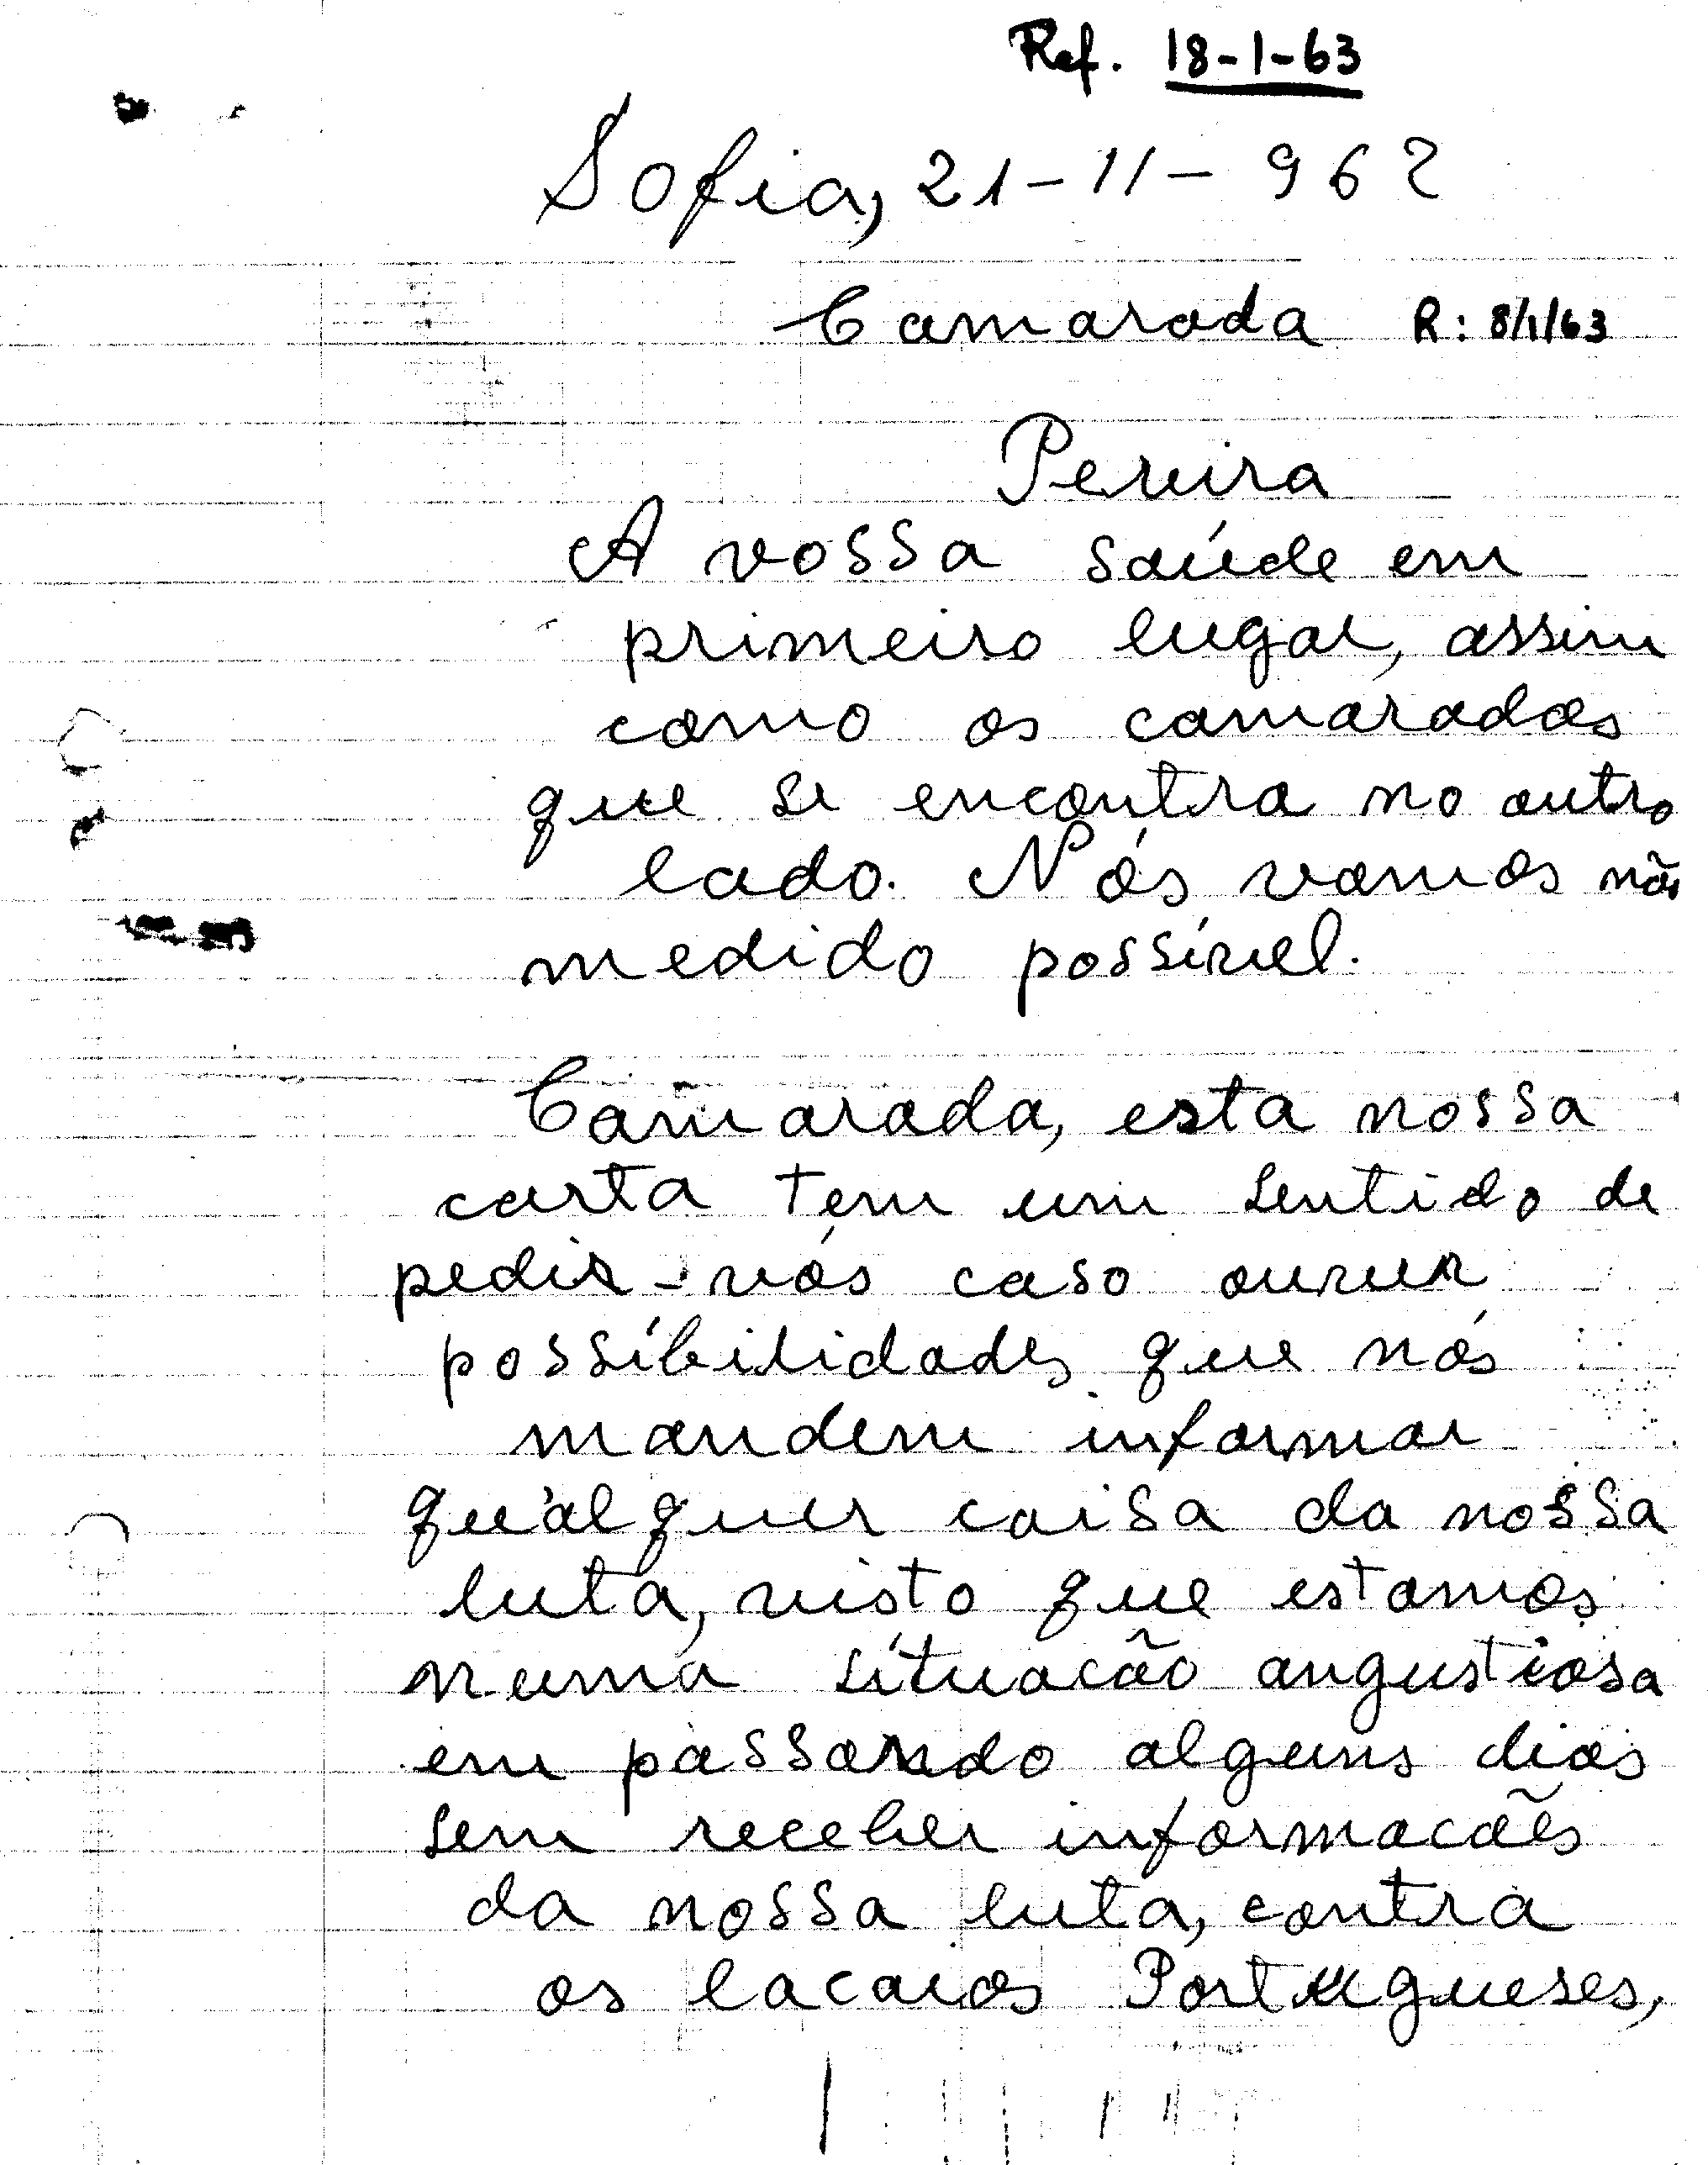 Ref. 18-1-63
Sofia, 21-11-962
Camarada R: 8/1/63
Pereira
A vossa saúde em
primeiro lugar, assim
como os camaradas
que se encontra no outro
lado. Nós vamos não
medido possível.
Camarada, esta nossa
carta tem um sentido de
pedir-vós caso ouver
possíbilidades que nós
mandem informar
qualquer coisa da nossa
luta, visto que estamos
numa sítuacão angustiosa
em passando alguns dias
sem receber informacões
da nossa luta, contra
os lacaios Portugueses,